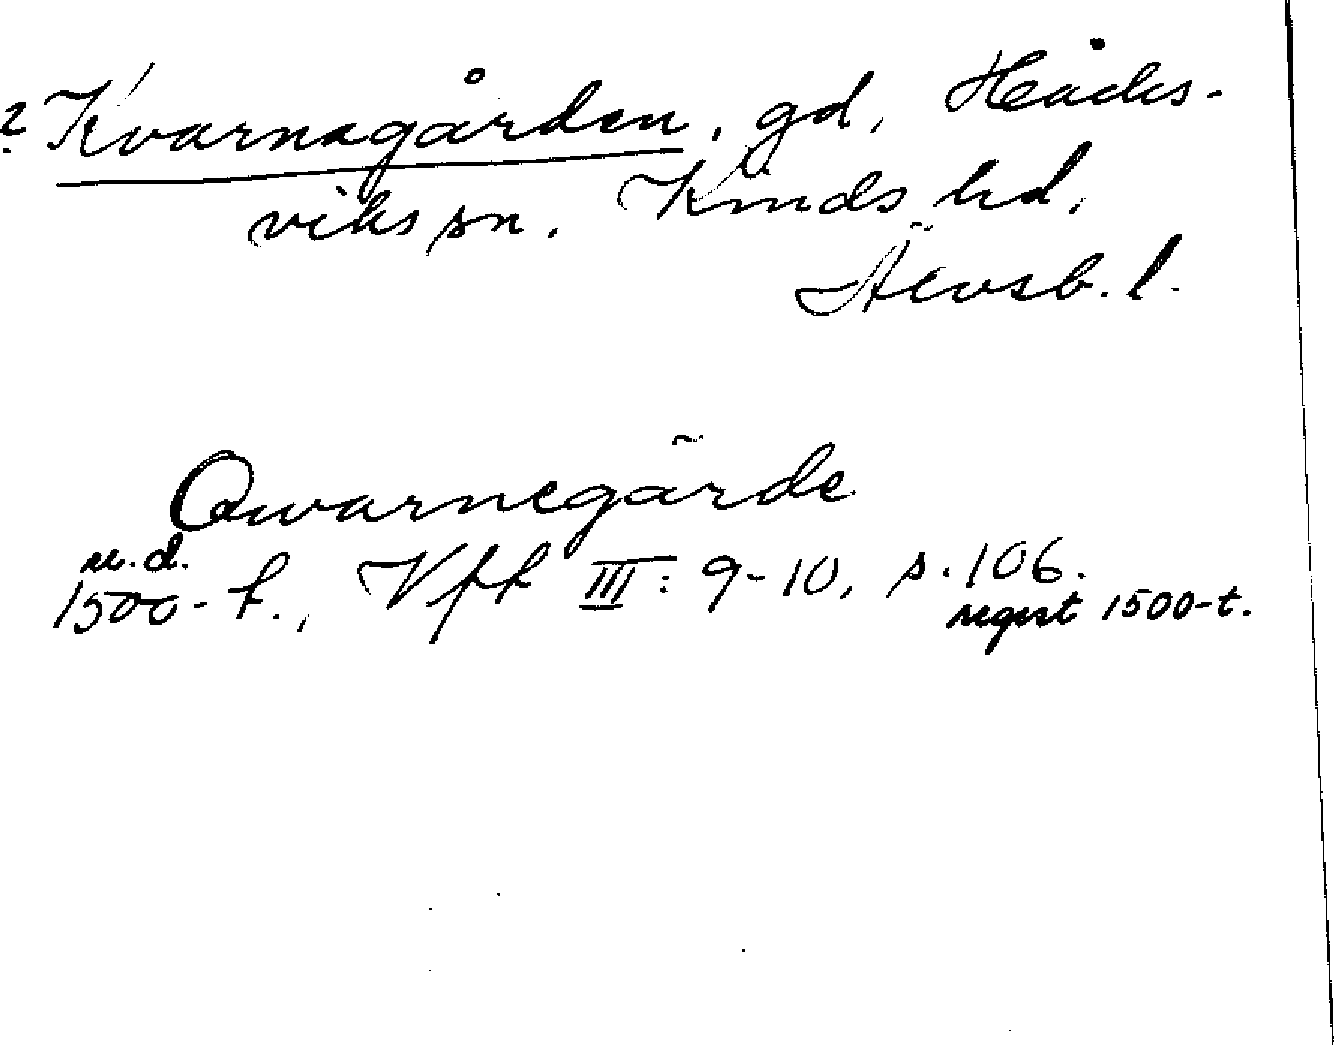 ? Kvarnagården, gd, Håcks-
viks sn. Kinds hd.
Älvsb. l.
Qwarnegärde
u.d.
1500-t., Vff III: 9-10, s. 106.
regest 1500-t.